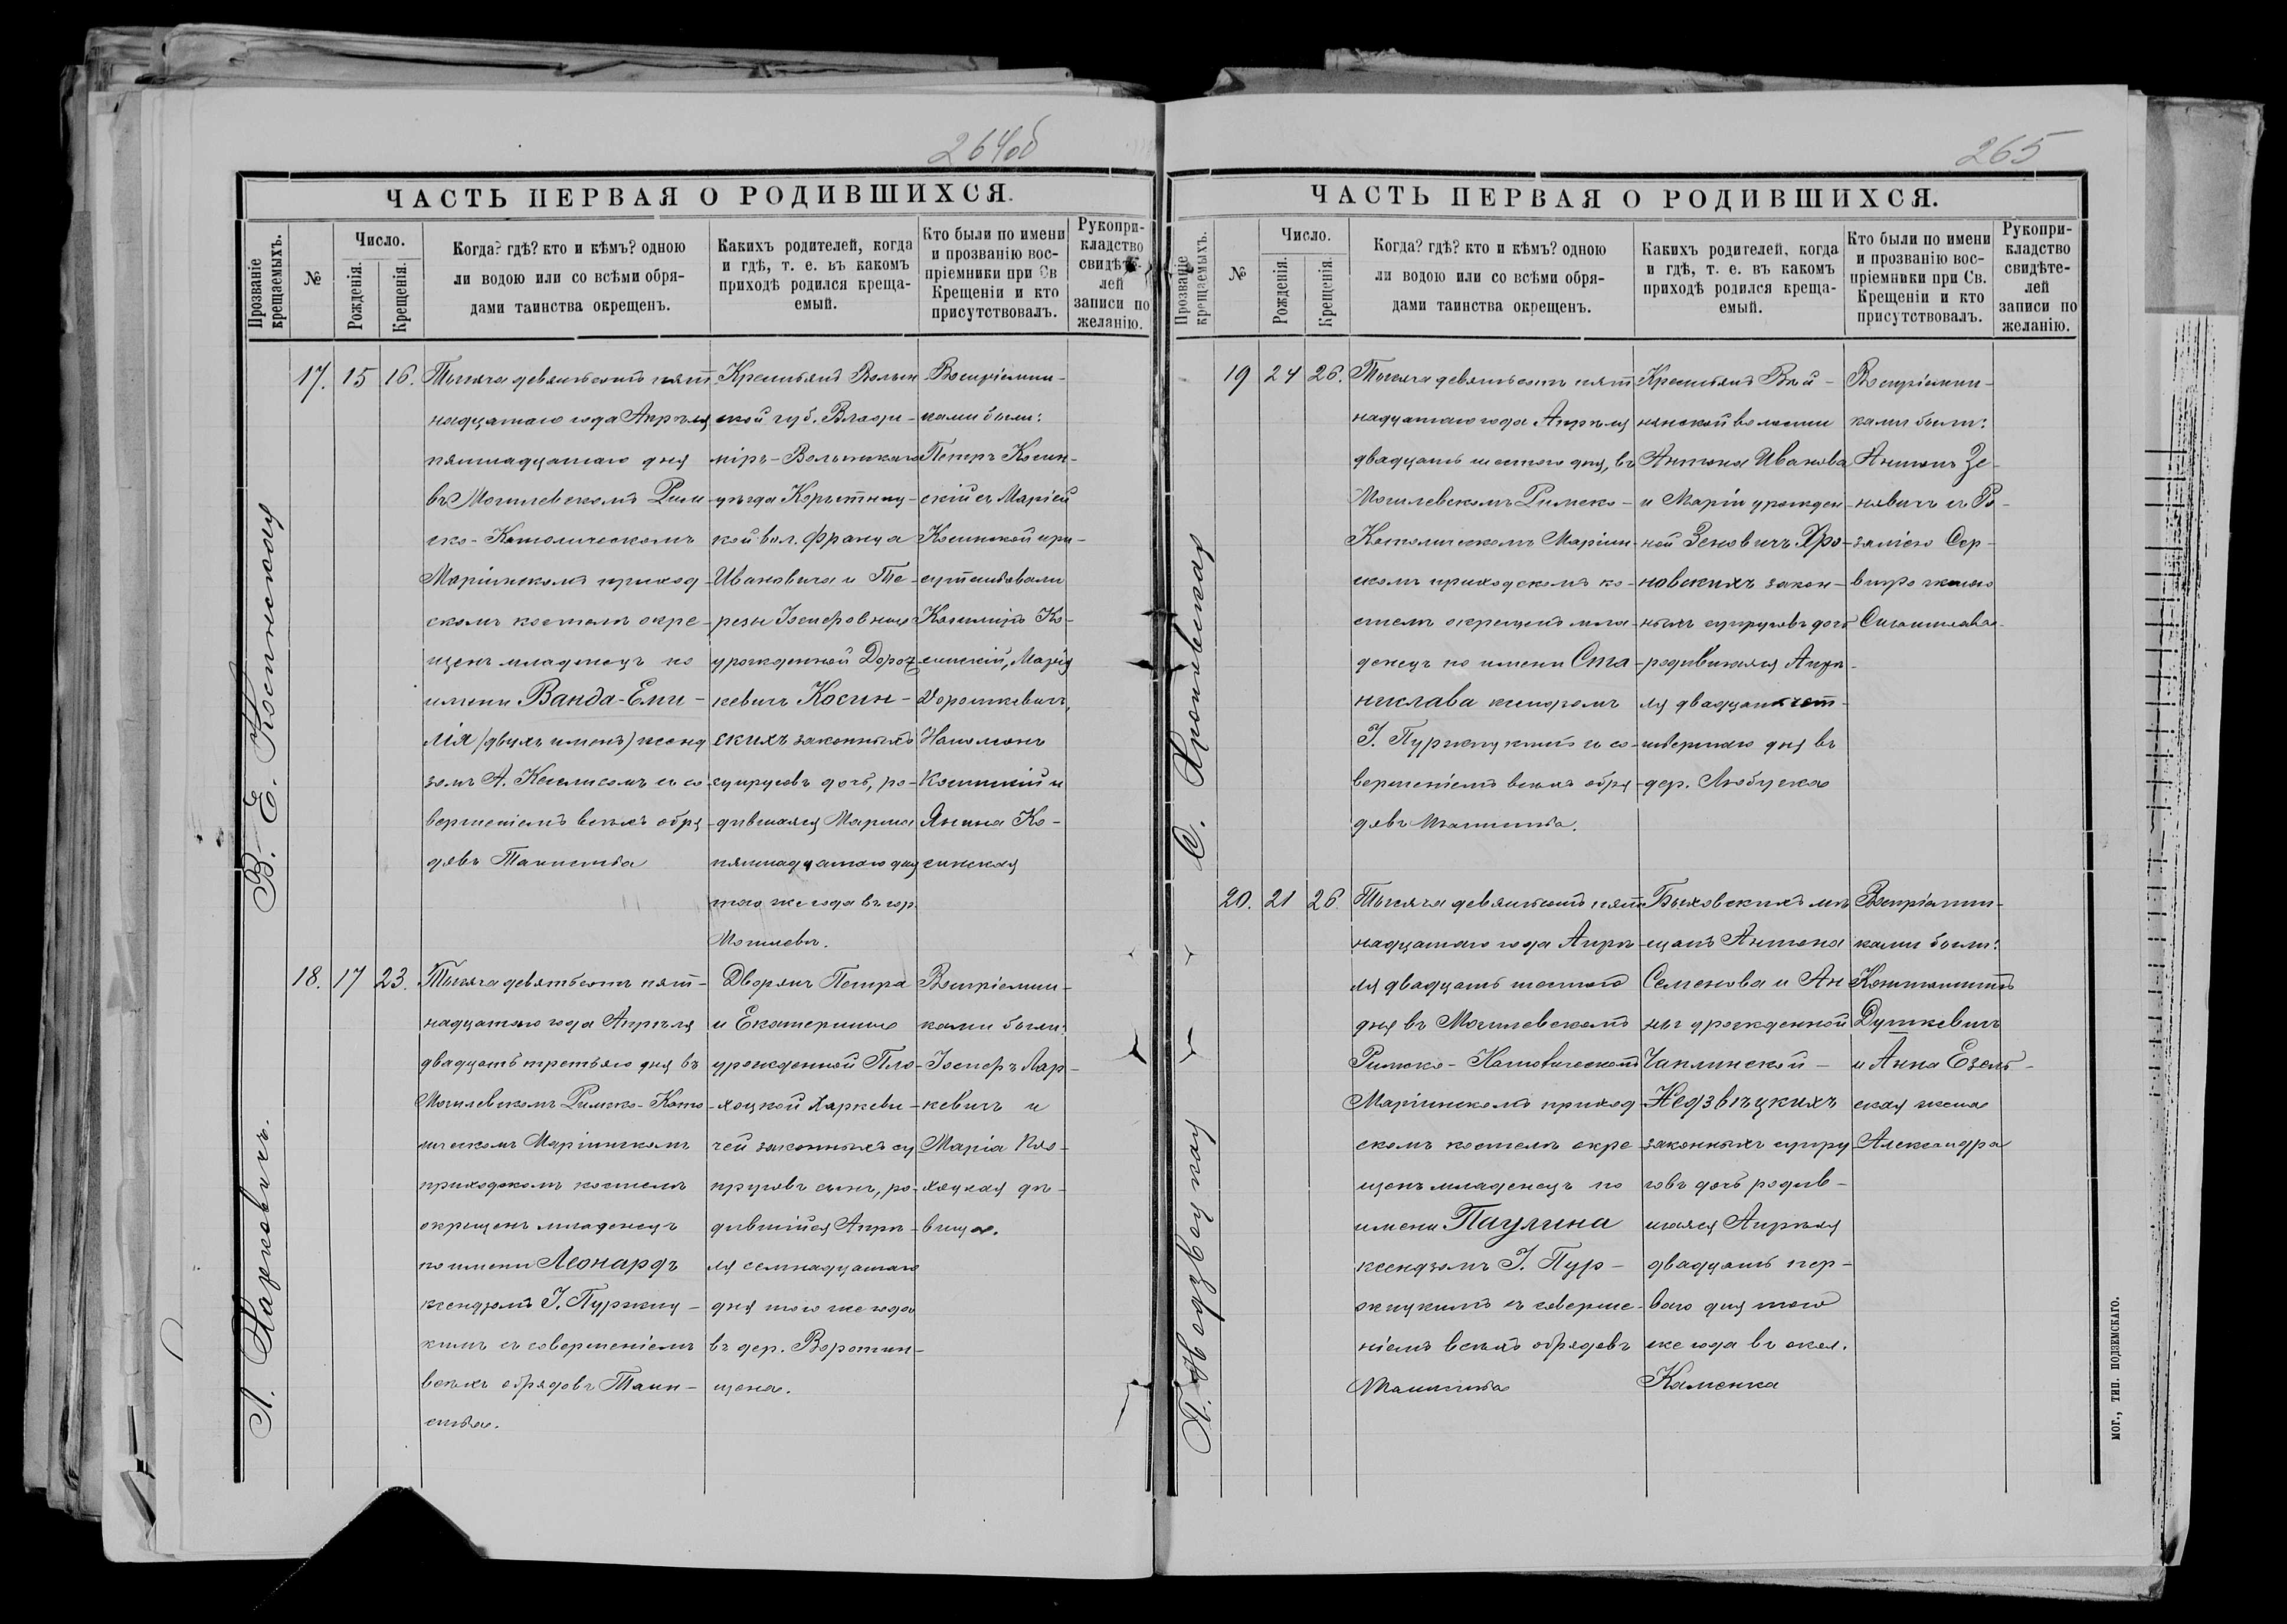 264об
ЧАСТЬ ПЕРВАЯ О РОДИВШИХСЯ.
Прозваніе крещаемыхъ.
№
Число.
Рожденія.
Крещенія.
Когда? гдѣ? кто и кѣмъ? одною
ли водою или со всѣми обря-
дами таинства окрещенъ.
Какихъ родителей, когда
и гдѣ, т. е. въ какомъ
приходѣ родился креща-
емый.
Кто были по имени
и прозванію вос-
пріемники при Св
Крещеніи и кто
присутствовалъ.
Рукопри-
кладство
свидѣте-
лей
записи по
желанію.
В. Е. Косинская
17. 15 16.
Тысяча девятьсотъ пят-
надцатаго года Апрѣля
пятнадцатаго дня
въ Могилевскомъ Рим
ско-Католическомъ
Маріинскомъ приход
скомъ костелѣ окре-
щенъ младенецъ по
имени Ванда-Еми-
лія (двухъ именъ) ксенд
зомъ А. съ со
вершеніемъ всѣхъ обря
довъ Таинства
Крестьянъ Волын
ской губ. Влади-
міръ-Волынскаго
уѣзда Корытниц-
кой вол. Франца
Ивановича и Те-
резы Іосифовны
урожденной Дорош
кевичъ Косин-
скихъ законныхъ
супруговъ дочь, ро-
дившаяся Марта
пятнадцатаго дня
того же года въ гор.
Могилевѣ.
Воспріемни-
ками были:
Петръ Косин-
скій съ Маріей
Косинской при-
сутствовали
Казиміръ Ко-
синскій, Марія
Дорошкевичъ,
Наполеонъ
Косинскій и
Янина Ко-
синская
Л. Ларкевичъ.
18. 17 23.
Тысяча девятьсотъ пят-
надцатаго года Апрѣля
двадцать третьяго дня въ
Могилевскомъ Римско-Като
лическомъ Маріинскомъ
приходскомъ костелѣ
окрещенъ младенецъ
по имени Леонардъ
ксендзомъ І. Пуржиц-
кимъ съ совершеніемъ
всѣхъ обрядовъ Таин-
ства.
Дворянъ Петра
и Екатерины
урожденной Пло-
хоцкой Ларкеви-
чей законныхъ су
пруговъ сынъ, ро-
дившійся Апрѣ-
ля семнадцатаго
дня того же года
въ дер. Воротын-
щена.
Воспріемни-
ками были:
Іосифъ Лар-
кевичъ и
Марія Пло-
хоцкая дѣ-
вица.
265
ЧАСТЬ ПЕРВАЯ О РОДИВШИХСЯ.
Прозваніе крещаемыхъ.
№
Число.
Рожденія.
Крещенія.
Когда? гдѣ? кто и кѣмъ? одною
ли водою или со всѣми обря-
дами таинства окрещенъ.
Какихъ родителей, когда
и гдѣ, т. е. въ какомъ
приходѣ родился креща-
емый.
Кто были по имени
и прозванію вос-
пріемники при Св.
Крещеніи и кто
присутствовалъ.
Рукопри-
кладство
свидѣте-
лей
записи по
желанію.
С. Хроновская
19 24 26.
Тысяча девятьсотъ пят
надцатаго года Апрѣля
двадцать шестого дня, въ
Могилевскомъ Римско-
Католическомъ Маріин-
скомъ приходскомъ ко-
стелѣ окрещенъ мла-
денецъ по имени Ста-
нислава ксендзомъ
І. Пуржицкимъ съ со-
вершеніемъ всѣхъ обря
довъ таинства.
Крестьянъ Вей-
нянской волости
Антона Иванова
и Маріи урожден-
ной Зеновичъ Хро-
новскихъ закон-
ныхъ супруговъ дочь
родившаяся Апрѣ-
ля двадцать чет-
вертаго дня въ
дер. Любужа
Воспріемни-
ками были:
Антонъ Зе-
новичъ съ Ро-
заліею Сер-
женою
Станислава
П. Недзвецкая
20. 21 26.
Тысяча девятьсотъ пят
надцатаго года Апрѣ-
ля двадцать шестого
дня въ Могилевскомъ
Римско-Католическомъ
Маріинскомъ приход
скомъ костелѣ окре
щенъ младенецъ по
имени Паулина
ксендзомъ І. Пур-
жицкимъ съ соверше-
ніемъ всѣхъ обрядовъ
таинства
Быховскихъ мѣ
щанъ Антона
Семенова и Ан
ны урожденной
Чаплинской-
Недзвѣцкихъ
законныхъ супру
говъ дочь родив-
шаяся Апрѣля
двадцать пер-
ваго дня того
же года въ окол.
Каменка
Воспріемни-
ками были:
Константинъ
Душкевичъ
и Анна Езель-
ская жена
Александра
МОГ., ТИП. ПОДЗЕМСКАГО.